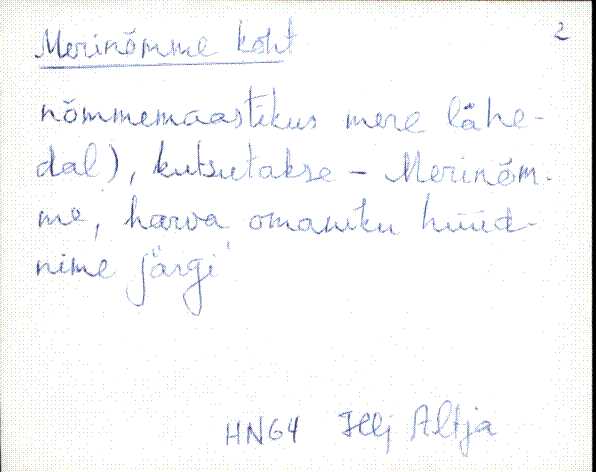 Merinõmme koht
2
nõmmemaastikus mere lähe-
dal), kutsutakse - Merinõm-
me, harva omaniku hüüd-
nime järgi
HN64 Hlj Altja